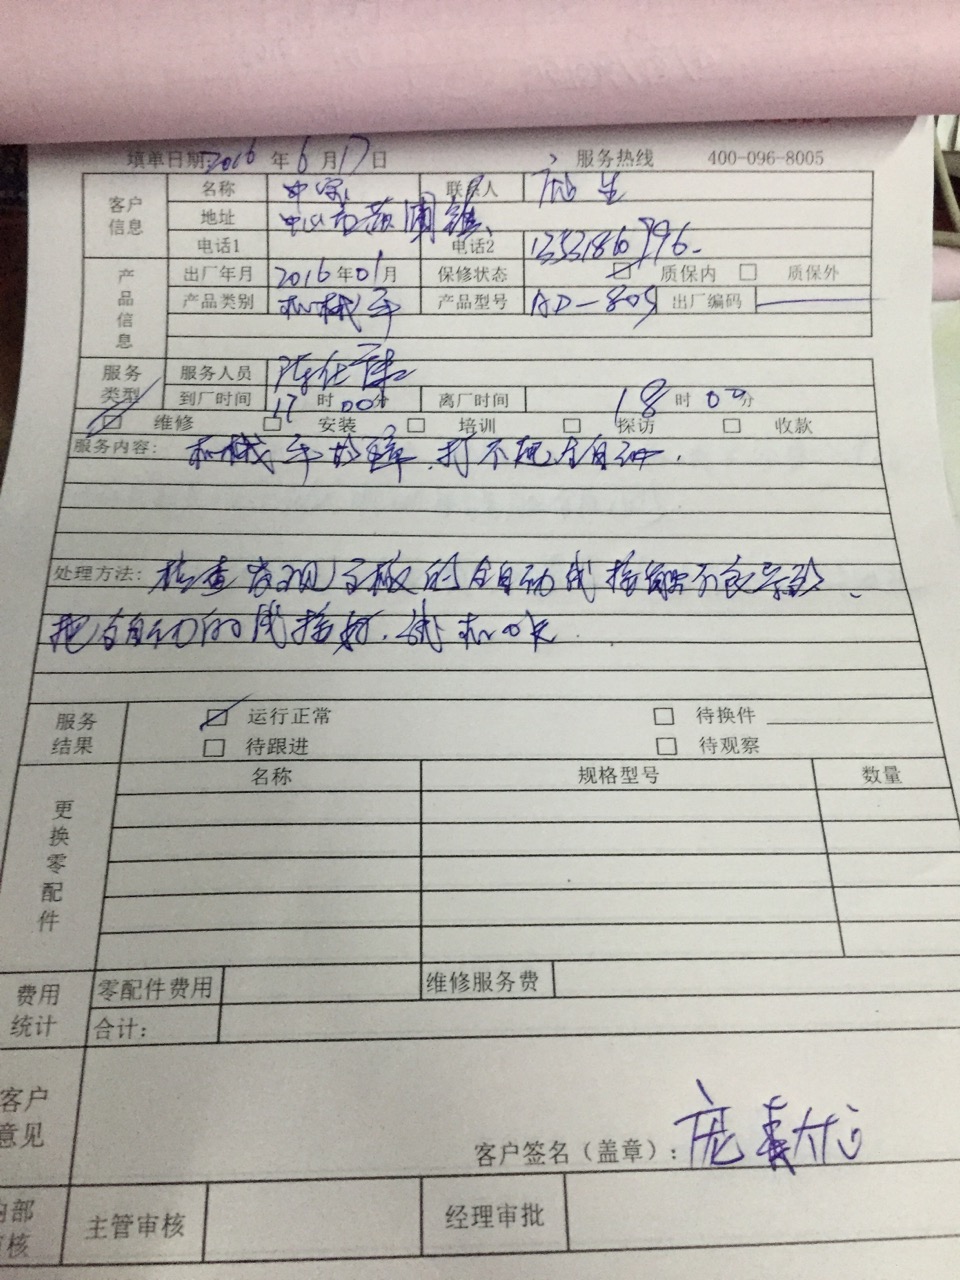 填单日期: 2016 年 6 月 17 日 服务热线 400-096-8005
客户信息
名称 联系人 庞生
地址 中山市
电话1 电话2
产品信息
出厂年月 2016年01月 保修状态 质保内 质保外
产品类别 机械手 产品型号 AD-80S 出厂编码
服务类型
服务人员
到厂时间 17 时 00分 离厂时间 18 时 00分
维修 安装 培训 探访 收款
服务内容: 机械手故障,打不了全自动.
处理方法: 检查发现主板的全自动线接触不良导致、
把全自动的线接好.试机OK.
服务结果
运行正常 待换件
待跟进 待观察
更换零配件
名称 规格型号 数量
费用统计
零配件费用 维修服务费
合计:
客户意见
客户签名(盖章): 庞
主管审核 经理审批